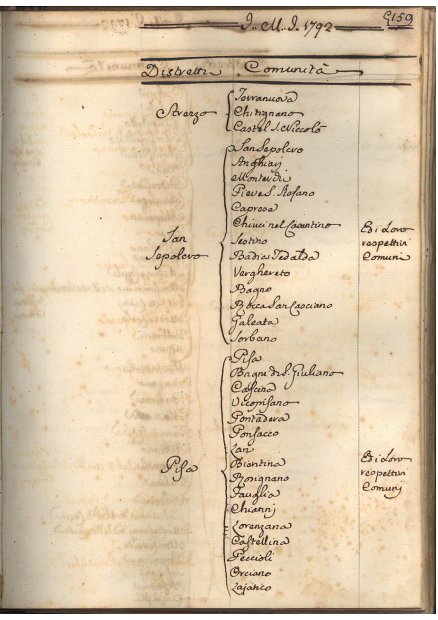 I. M. I. 1792
G159
Distretti Comunità
Arezzo
Terranuova
Chitignano
Castel S. Niccolò
San Sepolcro
San Sepolcro
Anghiari
Monterchi
Pieve S. Stefano
Caprese
Chiusi nel Casentino
Sestino
Badia Tedalda
Verghereto
Bagno
Rocca San Casciano
Galeata
Sorbano
Ed i Loro
respettivi
Comuni
Pisa
Pisa
Bagni di S. Giuliano
Cascina
Vicopisano
Pontadera
Ponsacco
Lari
Bientina
Rosignano
Fauglia
Chianni
Lorenzana
Castellina
Peccioli
Orciano
Lajatico
Ed i Loro
respettivi
Comunj